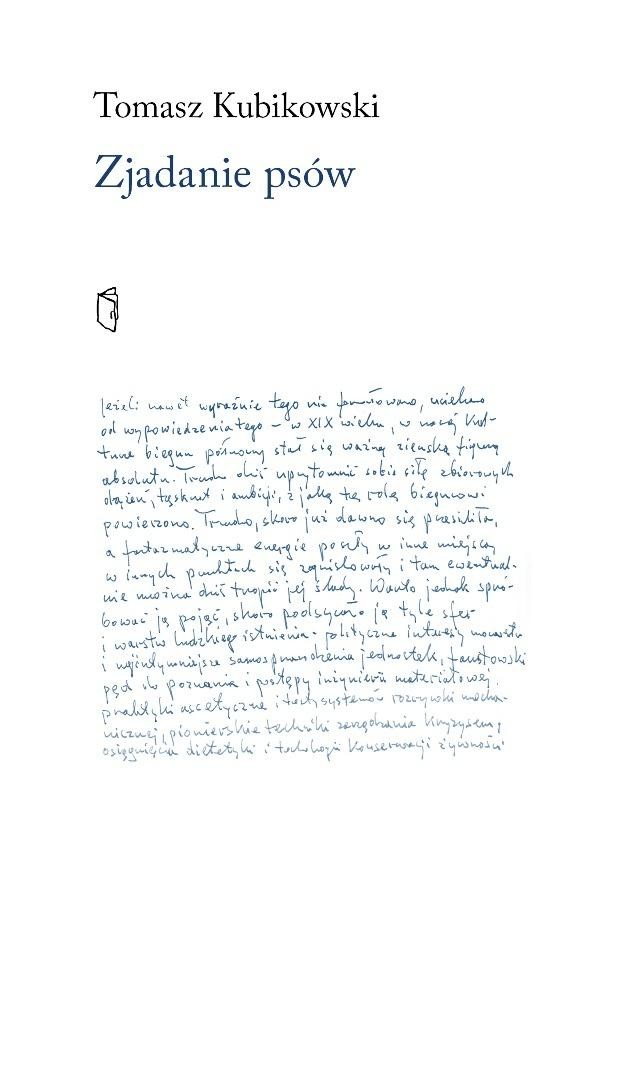 Tomasz Kubikowski
Zjadanie psów
Jeżeli nawet wyraźnie tego nie formułowano, uciekano
od wypowiedzenia tego – w XIX wieku, w naszej kul-
turze biegun północny stał się ważną ziemską figurą
absolutu. Trudno dziś uprzytomnić sobie siłę zbiorowych
dążeń, tęsknot i ambicji, z jaką tę rolę biegunowi
powierzono. Trudno, skoro już dawno się przesiliła,
a fantazmatyczne energie poszły w inne miejsca,
w innych punktach się zogniskowały i tam ewentual-
nie można dziś tropić jej ślady. Warto jednak spró-
bować ją pojąć, skoro podsycało ją tyle sfer
i warstw ludzkiego istnienia: polityczne interesy mocarstw
i najintymniejsze samosprawdzenia jednostek, faustowski
pęd do poznania i postępy inżynierii materiałowej,
praktyki ascetyczne i rozrywki mecha-
nicznej, pionierskie techniki zarządzania kryzysem,
osiągnięcia dietetyki i technologii konserwacji żywności